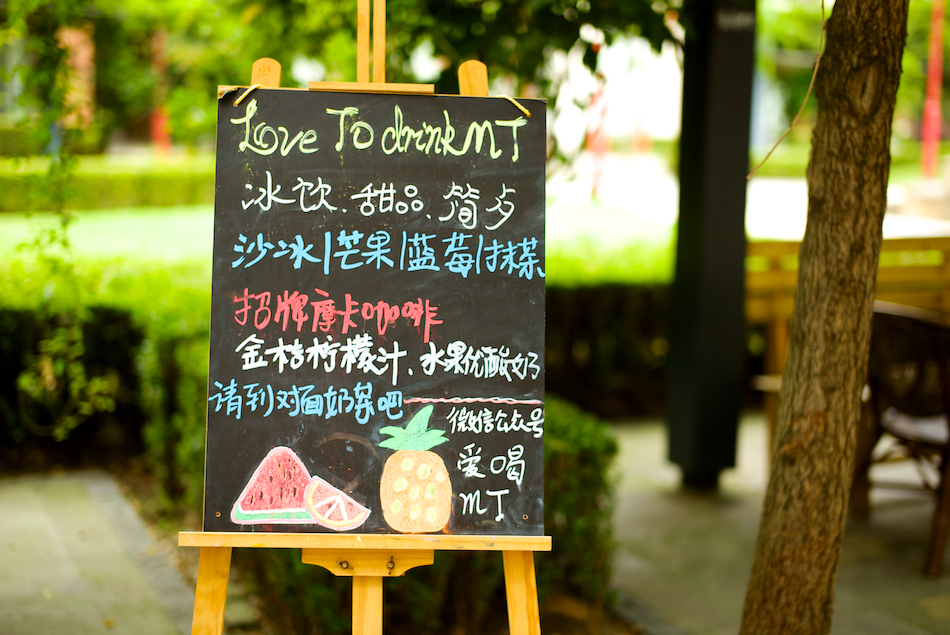 Love To drink MT
冰饮、甜品、简夕
沙冰|芒果|蓝莓|抹茶、
招牌摩卡咖啡
金桔柠檬汁、水果优酸奶
请到对面奶茶吧
微信公众号
爱喝
MT